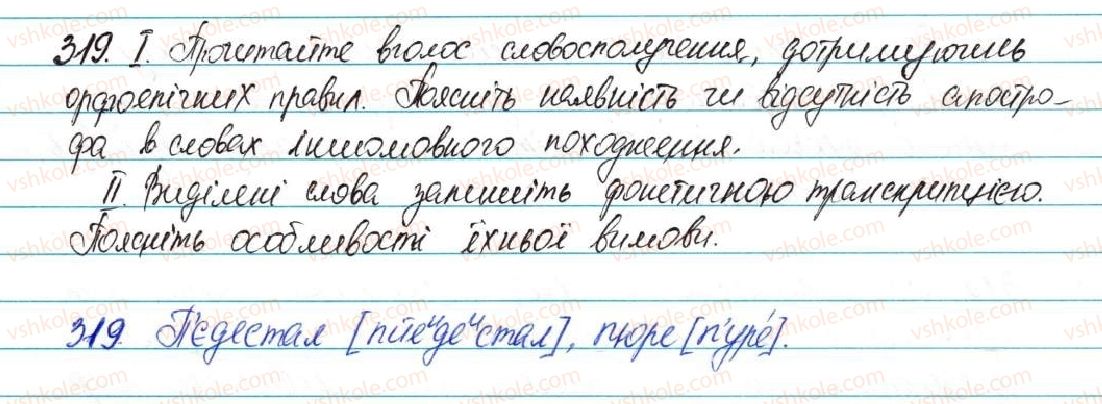 319. I. Прочитайте вголос словосполучення, дотримуючись
орфоепічних правил. Поясніть наявність чи відсутність апостро-
фа в словах іншомовного походження.
II. Виділені слова запишіть фонетичною транскрипцією.
Поясніть особливості їхньої вимови.
319. П'єдестал [пйеидеистал], пюре [п'уре́].